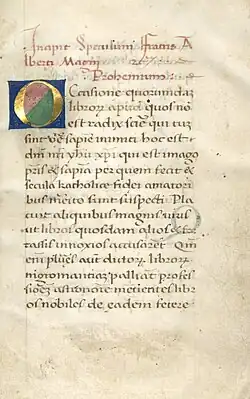 Incipit Speculum Fratris A
lberti Magni
Prohemium
Occasione quorundaz
libror apud quos nõ
est radix sciẽ qui tuz
sint vẽ sapiẽ inimici hoc est
dñi nri yhũ xpi qui est imago
pris & sapiã per quem fecit &
secula katholice fidei amatori
bus merito sunt suspecti Pla
cuit aliquibus magnis uiris
ut libros quosdam alios & for
tassis innoxios accusorẽt Qm̃
em̃ plures aut dictor libror
nigromantiaz palliãt profes
sionẽz astronomie mẽtiẽtes lib
ros nobiles de eadem fetere